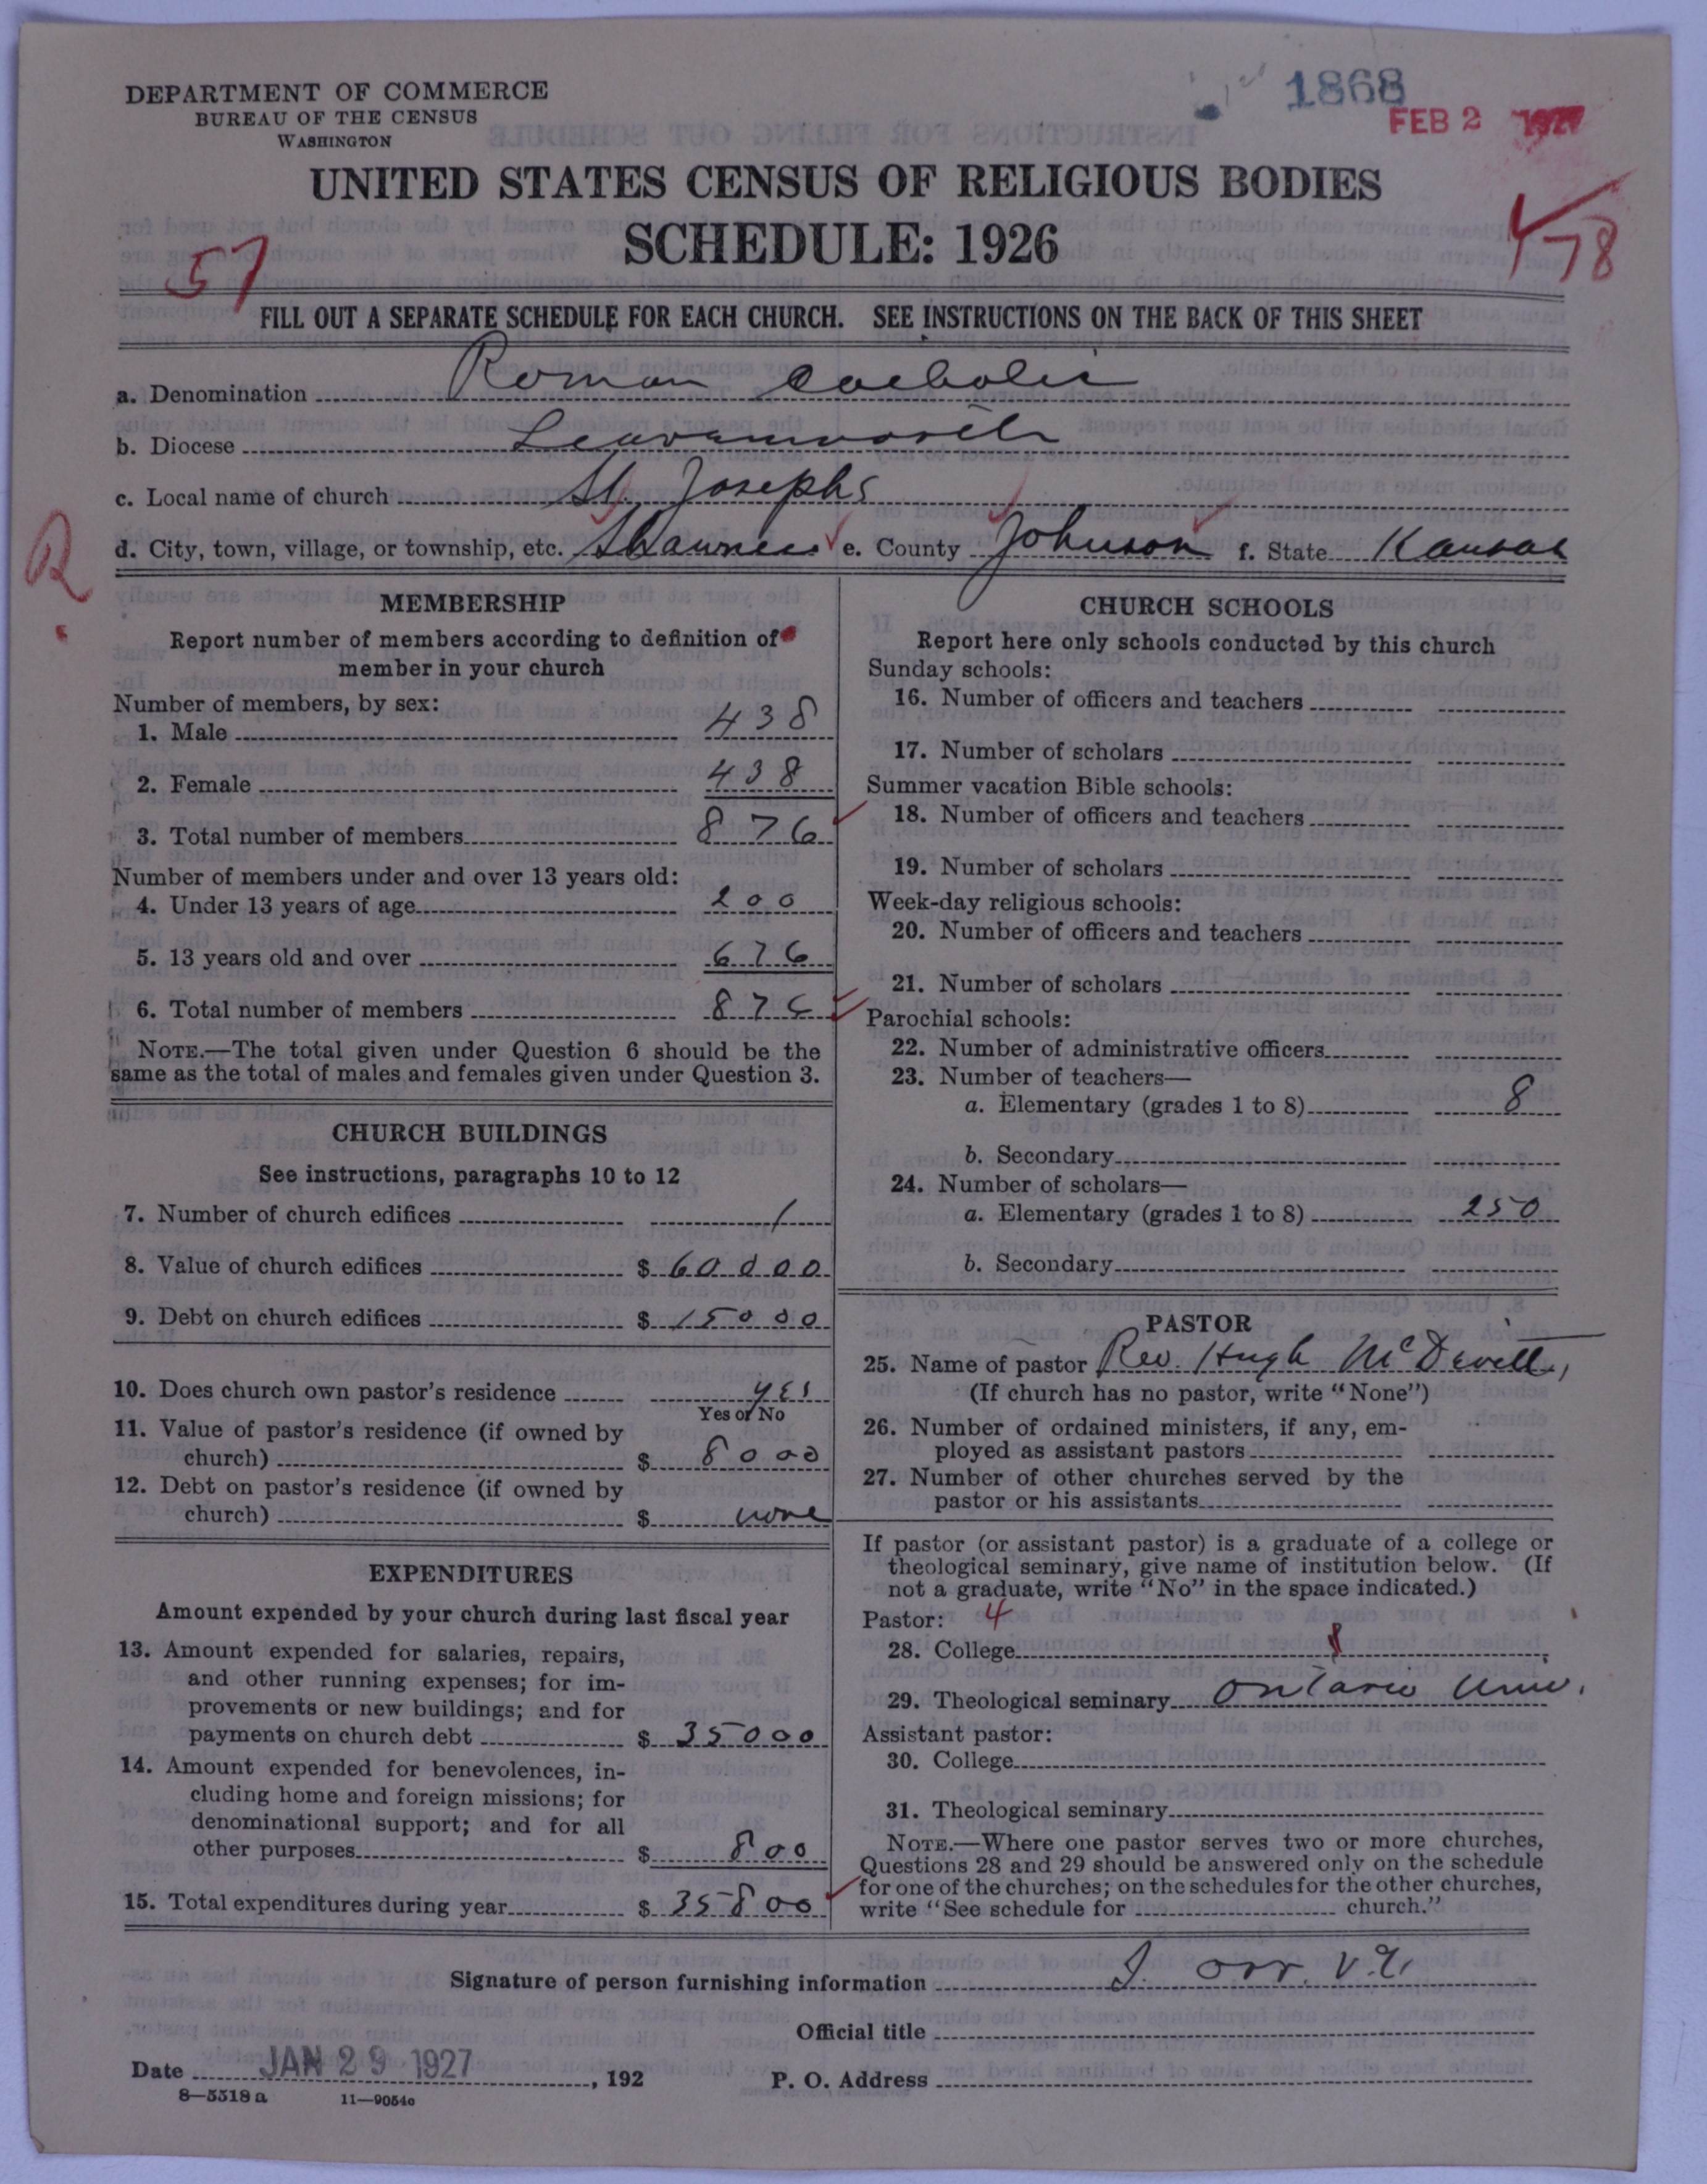 DEPARTMENT OF COMMERCE
BUREAU OF THE CENSUS
WASHINGTON
1868
FEB 2 1927
UNITED STATES CENSUS OF RELIGIOUS BODIES
SCHEDULE: 1926
57
478
FILL OUT A SEPARATE SCHEDULE FOR EACH CHURCH. SEE INSTRUCTIONS ON THE BACK OF THIS SHEET
a. Denomination Roman Catholic
b. Diocese Leavenworth
c. Local name of church St. Josephs
d. City, town, village, or township, etc. Shawnee e. County Johnson f. State Kansas
R
MEMBERSHIP
Report number of members according to definition of
member in your church
Number of members, by sex:
1. Male 438
2. Female 438
3. Total number of members 876
Number of members under and over 13 years old:
4. Under 13 years of age 200
5. 13 years old and over 676
6. Total number of members 876
NOTE.—The total given under Question 6 should be the
same as the total of males and females given under Question 3.
CHURCH BUILDINGS
See instructions, paragraphs 10 to 12
7. Number of church edifices 1
8. Value of church edifices $ 60000
9. Debt on church edifices $ 15000
10. Does church own pastor's residence yes
Yes or No
11. Value of pastor's residence (if owned by
church) $ 8000
12. Debt on pastor's residence (if owned by
church) $ none
EXPENDITURES
Amount expended by your church during last fiscal year
13. Amount expended for salaries, repairs,
and other running expenses; for im-
provements or new buildings; and for
payments on church debt $ 35000
14. Amount expended for benevolences, in-
cluding home and foreign missions; for
denominational support; and for all
other purposes $ 800
15. Total expenditures during year $ 35800
CHURCH SCHOOLS
Report here only schools conducted by this church
Sunday schools:
16. Number of officers and teachers
17. Number of scholars
Summer vacation Bible schools:
18. Number of officers and teachers
19. Number of scholars
Week-day religious schools:
20. Number of officers and teachers
21. Number of scholars
Parochial schools:
22. Number of administrative officers
23. Number of teachers—
a. Elementary (grades 1 to 8) 8
b. Secondary
24. Number of scholars—
a. Elementary (grades 1 to 8) 250
b. Secondary
PASTOR
25. Name of pastor Rev. Hugh McDevitt,
(If church has no pastor, write "None")
26. Number of ordained ministers, if any, em-
ployed as assistant pastors
27. Number of other churches served by the
pastor or his assistants
If pastor (or assistant pastor) is a graduate of a college or
theological seminary, give name of institution below. (If
not a graduate, write "No" in the space indicated.)
Pastor: 4
28. College
29. Theological seminary Ontario Univ.
Assistant pastor:
30. College
31. Theological seminary
NOTE.—Where one pastor serves two or more churches,
Questions 28 and 29 should be answered only on the schedule
for one of the churches; on the schedules for the other churches,
write "See schedule for church."
Signature of person furnishing information J. Orr. V.G.
Official title
Date JAN 29 1927, 192
P. O. Address
8—5518 a 11—9054a